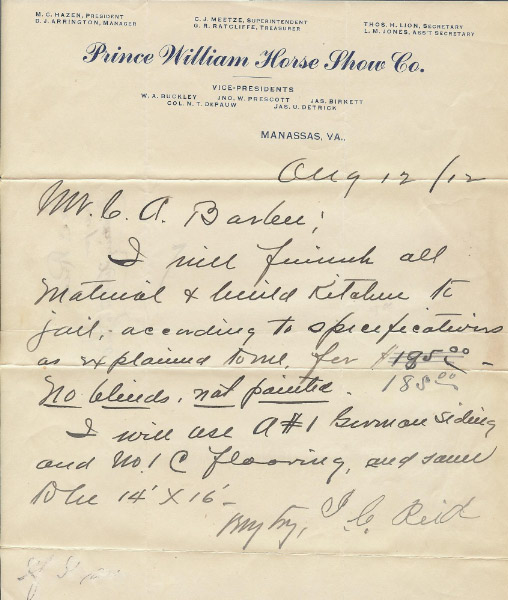 M. C. HAZEN, PRESIDENT
D. J. ARRINGTON, MANAGER
C. J. MEETZE, SUPERINTENDENT
G. R. RATCLIFFE, TREASURER
THOS. H. LION, SECRETARY
L. M. JONES, ASS'T SECRETARY
Prince William Horse Show Co.
VICE-PRESIDENTS
W. A. BUCKLEY JNO. W. PRESCOTT JAS. BIRKETT
COL. N. T. DEPAUW JAS. U. DETRICK
MANASSAS, VA.,
Aug 12/12
Mr. C. A. Barbee;
I will furnish all
Material & build Kitchen to
jail, according to specifications
as explained to me, for $195.00 -
185.00
No blinds, not painted.
I will use A#1 German siding
and No. 1 C flooring, and same
to be 14' X 16' -
Reid